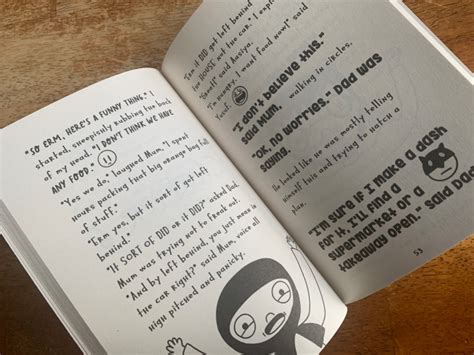 "SO ERM, HERE'S A FUNNY THING," I
started, sheepishly rubbing the back
of my head. "I DON'T THINK WE HAVE
ANY FOOD."
"Yes we do," laughed Mum, "I spent
hours packing that big orange bag full
of stuff."
"Erm yes, but it sort of got left
behind."
"IT SORT OF DID or it DID?" asked Dad.
Mum was trying not to freak out.
"And by left behind, you just mean in
the car right?" said Mum, voice all
high pitched and panicky.
"Erm it DID get left behind
the HOUSE not the car."
said Amiya.
"I'm hungry. I want food now!" said
Yusuf.
walking in circles.
"I don't believe this."
said Mum.
"OK, no worries." Dad was
saying.
He looked like he was mostly telling
himself this and trying to hatch a
"I'm sure if I make a dash
for it, I'll find a
supermarket or a
takeaway open." said Dad
53